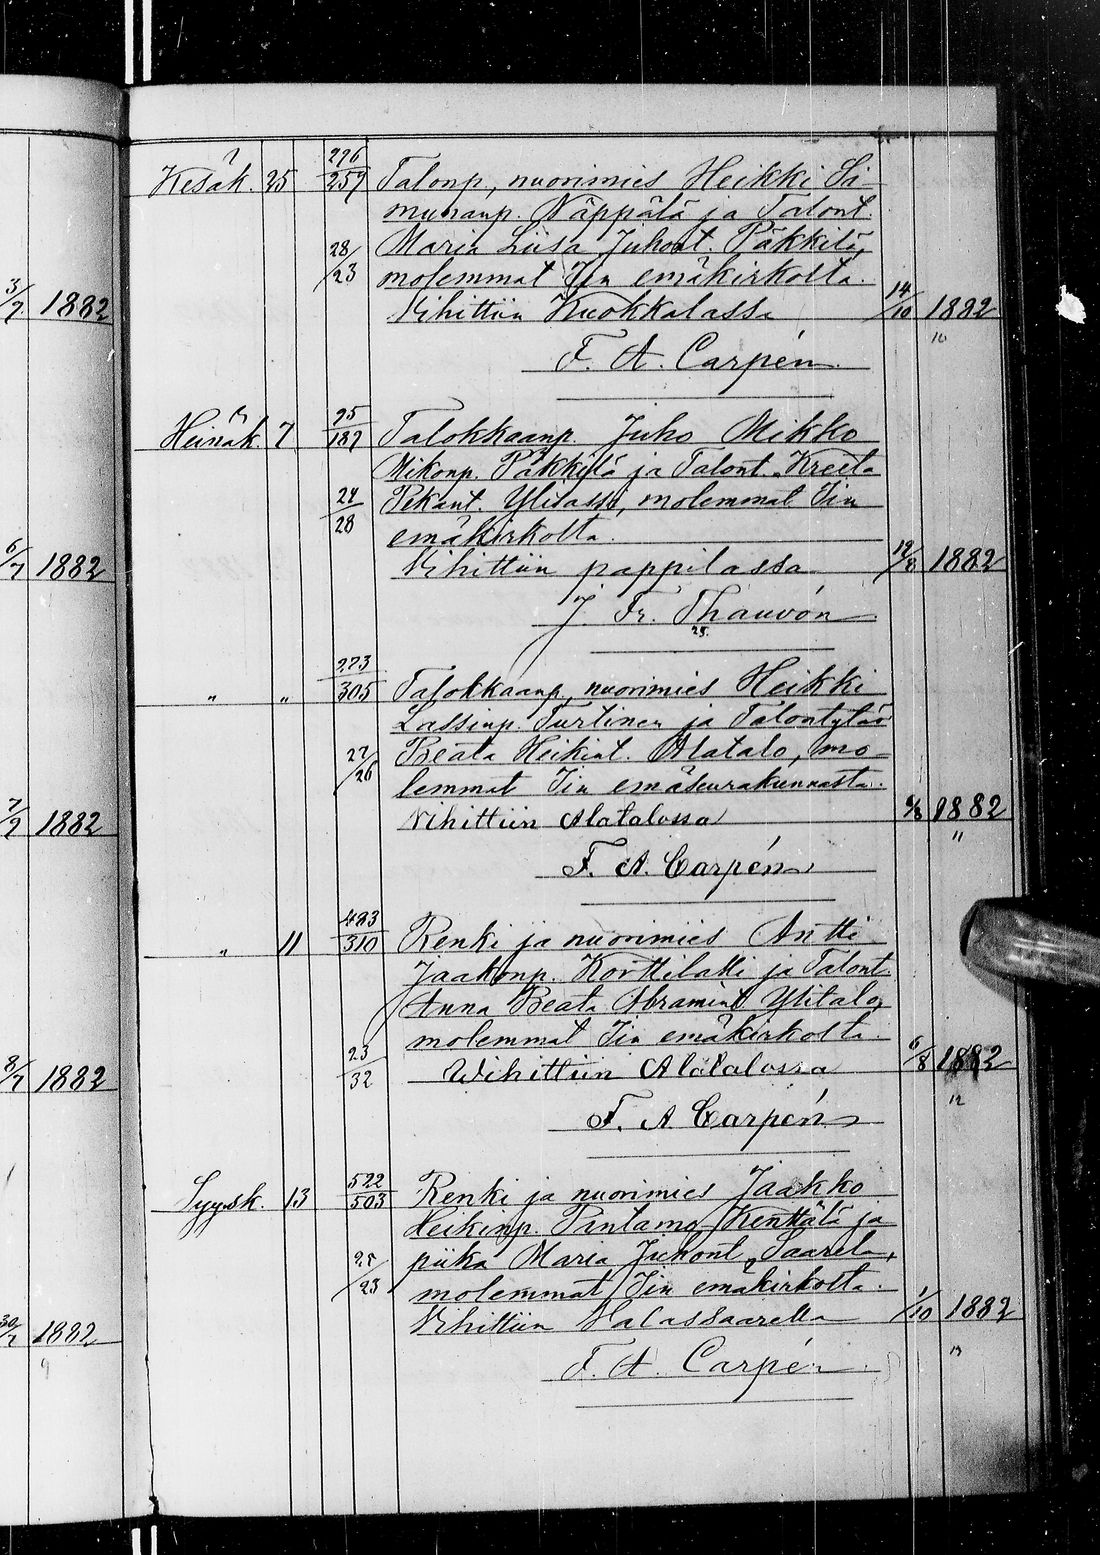 Kesäk. 25 296/257 Talonp, nuorimies Heikki Si
munanp. Näppälä ja Talont.
28/23 Maria Liisa Juhont. Päkkilä,
molemmat Iin emäkirkolta.
3/7 1882 Vihittiin Kuokkalassa 14/10 1882
10
F. A. Carpén
Heinäk. 7 25/187 Talokkaanp. Juho Mikko
Mikonp. Päkkilä ja Talont. Kreeta
24/28 Pekant. Ylitalo, molemmat Iin
emäkirkolta.
6/7 1882 Vihittiin pappilassa 12/8 1882
J. Fr. Thauvón
25.
" " 223/305 Talokkaanp, nuorimies Heikki
Lassinp. Turtinen ja Talontytär
27/26 Beata Heikint. Alatalo, mo-
lemmat Iin emäseurakunnasta.
7/7 1882 Vihittiin Alatalossa 6/8 1882
"
F. A. Carpén
" 11 483/310 Renki ja nuorimies Antti
Jaakonp. Korttilalli ja Talont.
Anna Beata Abramint. Ylitalo,
molemmat Iin emäkirkolta.
8/7 1882 23/32 Wihittiin Alatalossa 6/8 1882
12
F. A. Carpén
Syysk. 13 522/503 Renki ja nuorimies Jaakko
Heikinp. Pintamo Kenttälä ja
25/23 piika Maria Juhont. Saarela,
molemmat Iin emäkirkolta.
30/7 1882 Vihittiin Halassaarella 1/10 1882
9 13
F. A. Carpén